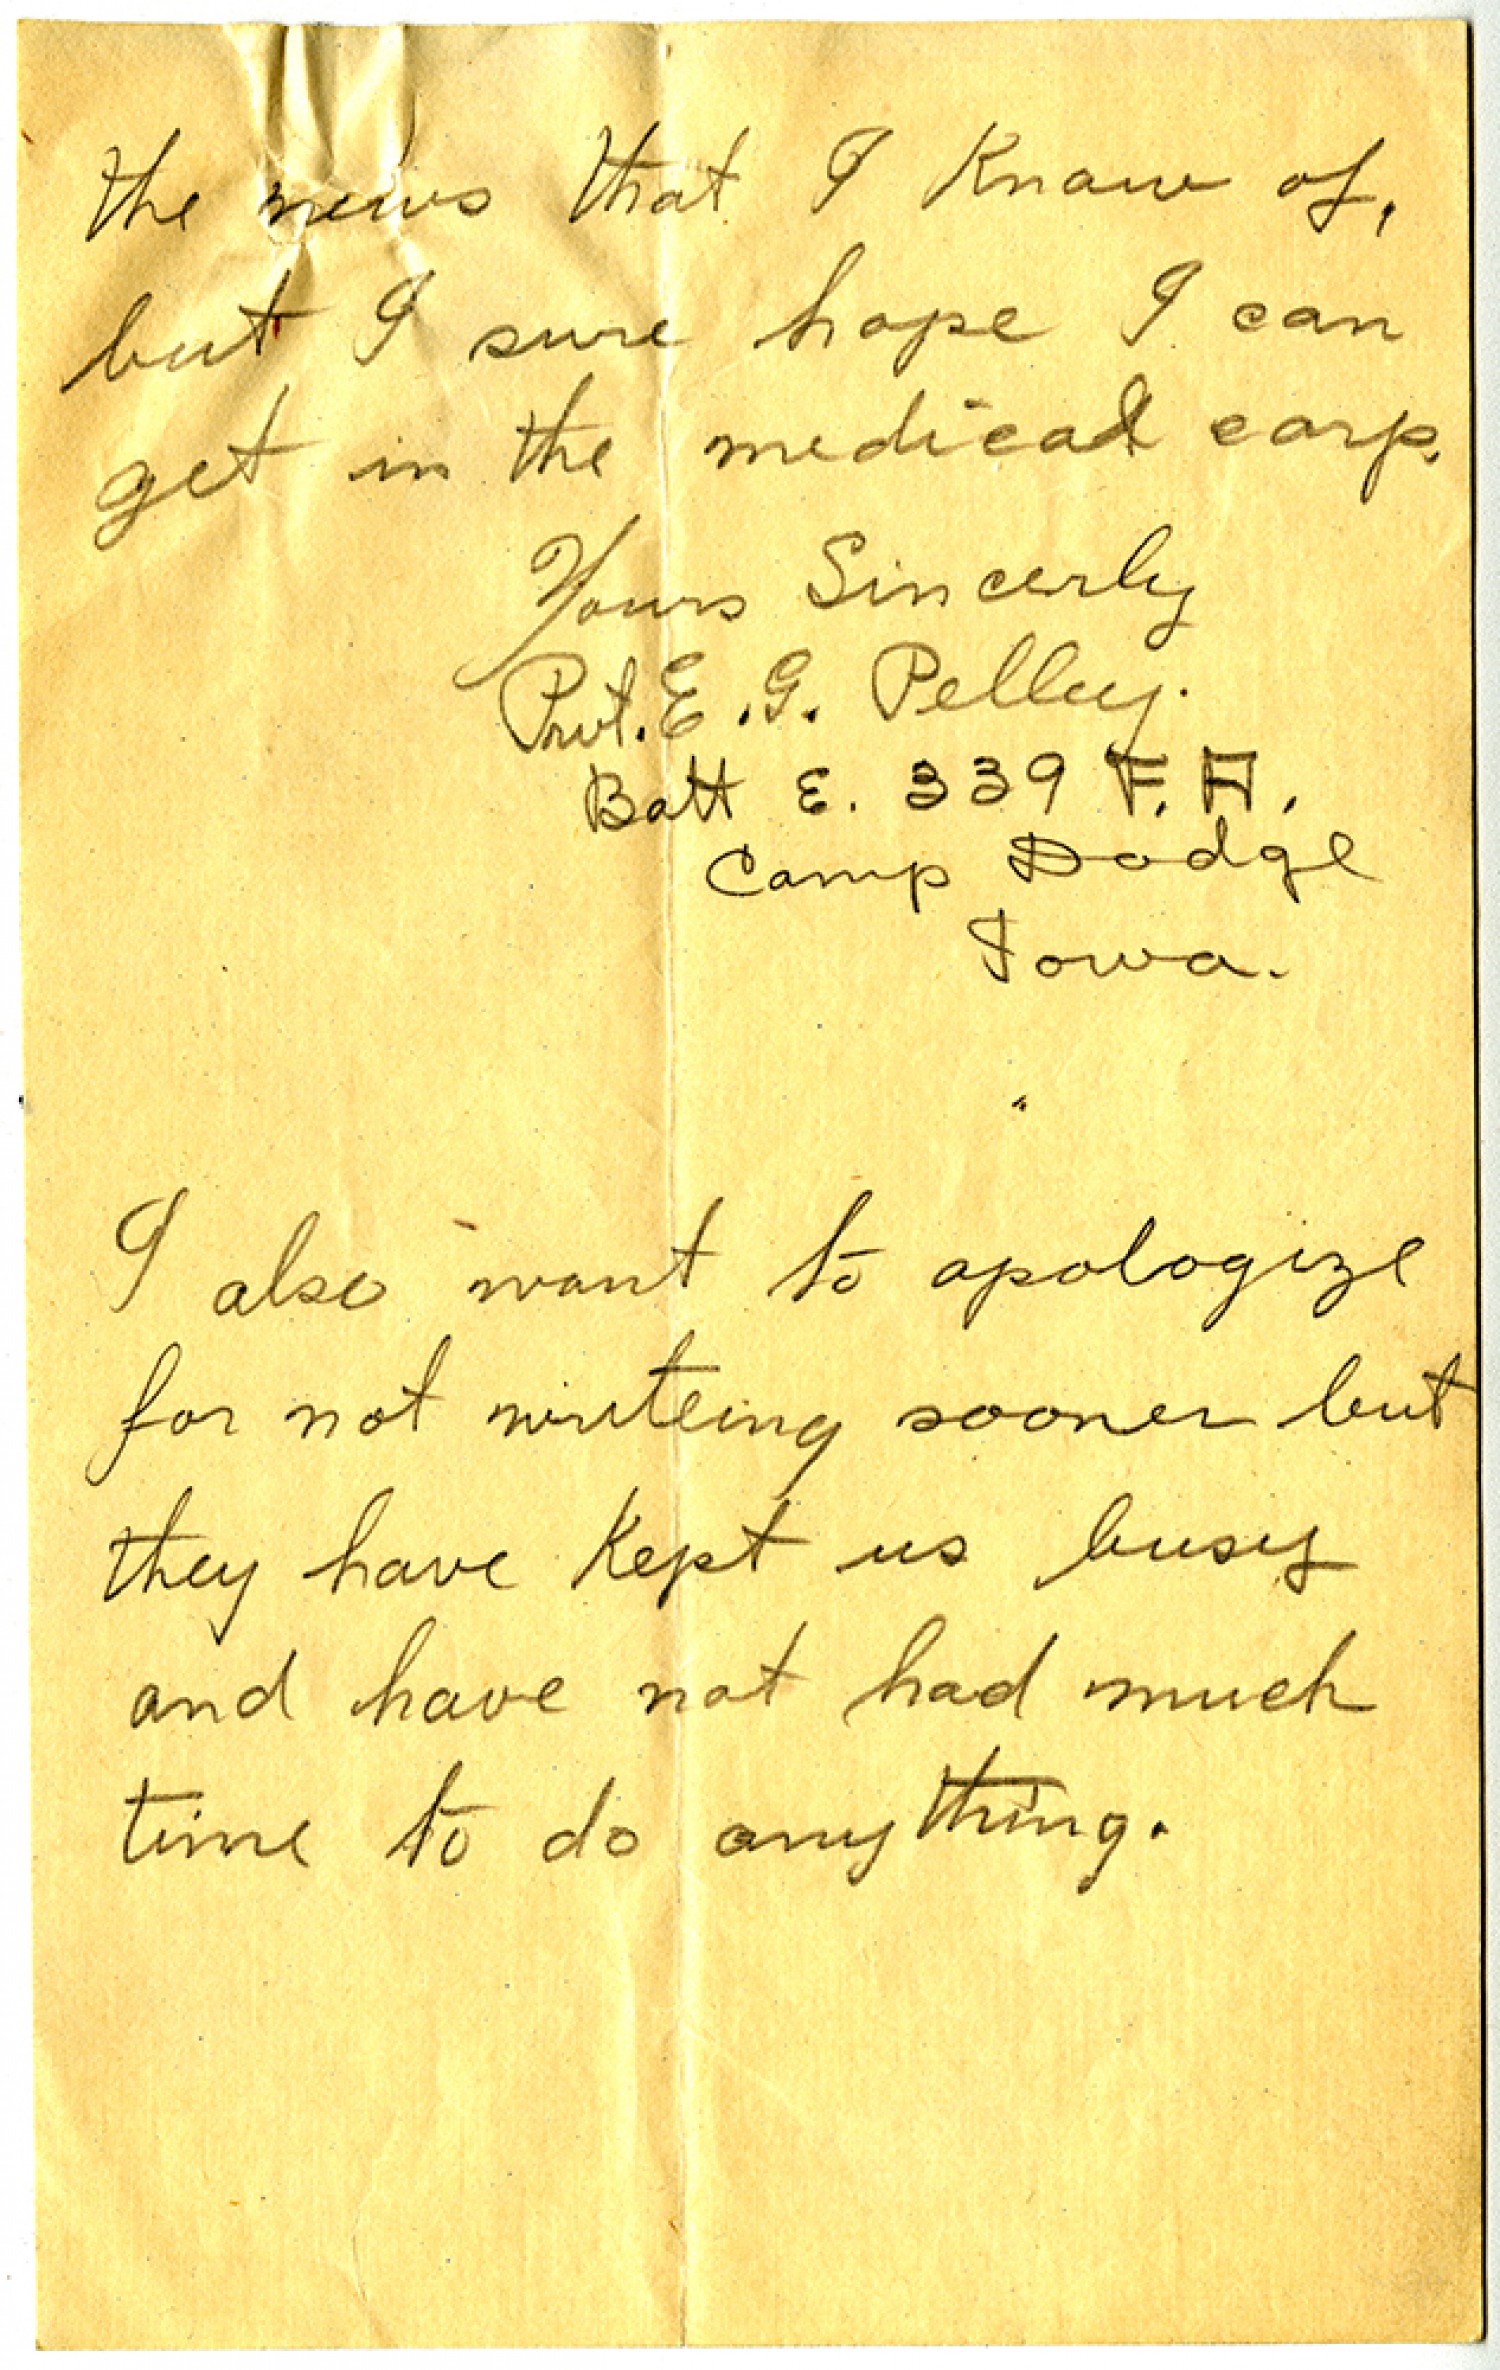 the news that I Know of,
but I sure hope I can
get in the medical corp.
Yours Sincerly
Prvt. E. G. Pelley.
Batt E. 339 F. A.
Camp Dodge
Iowa.
I also want to apologize
for not writeing sooner but
they have Kept us busy
and have not had much
time to do anything.